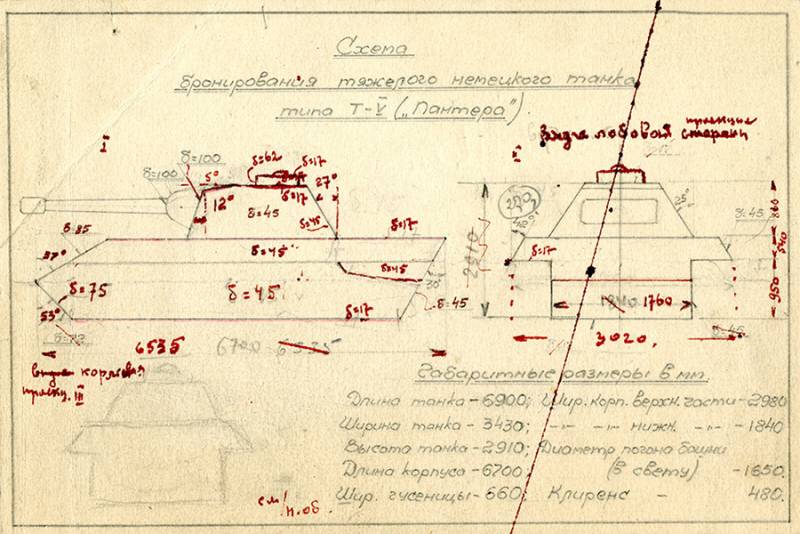 Схема
бронирования тяжелого немецкого танка
типа Т-V („Пантера")
I
δ=100
δ=100
5°
12°
δ=62
δ=17
δ=17
27°
δ=45
δ=45
δ=85
37°
δ=17
δ=45
δ=45
δ=75
δ=45
30°
δ=45
53°
δ=17
6535
6700
6535
вид лобовой проекции стороны
25°
2910
δ=17
δ=45
540
950
1840 1760
δ=45
3020.
кормовая
III
см/
н.об.
Габаритные размеры в мм.
Длина танка-6900; Шир. корп. верхн. части-2980
Ширина танка-3430; -"- -"- нижн. -"- -1840
Высота танка-2910; Диаметр погона башни
Длина корпуса-6700; (в свету) -1650
Шир. гусеницы-660; Клиренс - 480.